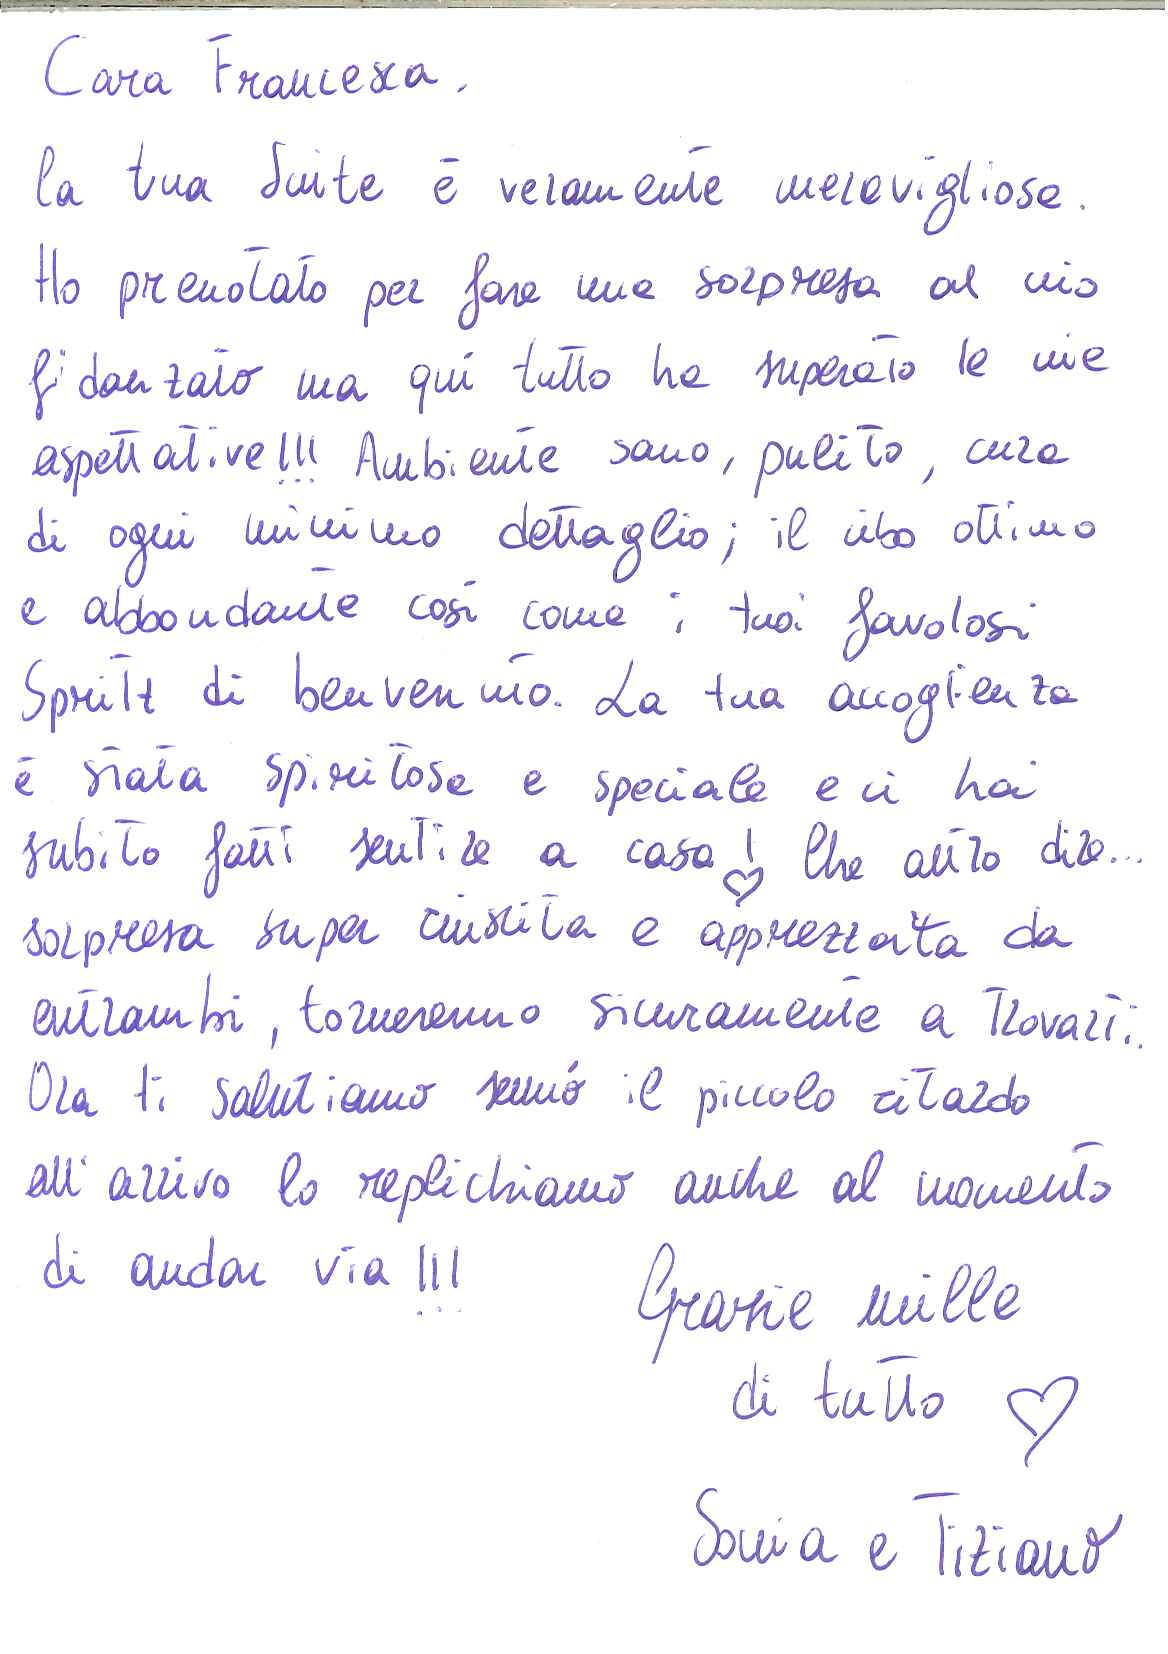 Cara Francesca,
la tua Suite è veramente meravigliosa.
Ho prenotato per fare una sorpresa al mio
fidanzato ma qui tutto ha superato le mie
aspettative!!! Ambiente sano, pulito, cura
di ogni minimo dettaglio; il cibo ottimo
e abbondante così come i tuoi favolosi
Spritz di benvenuto. La tua accoglienza
è stata spiritosa e speciale e ci hai
subito fatti sentire a casa! ♡ Che altro dire...
sorpresa super riuscita e apprezzata da
entrambi, torneremo sicuramente a trovarti.
Ora ti salutiamo sennò il piccolo ritardo
all'arrivo lo replichiamo anche al momento
di andar via!!!
Grazie mille
di tutto ♡
Sonia e Tiziano